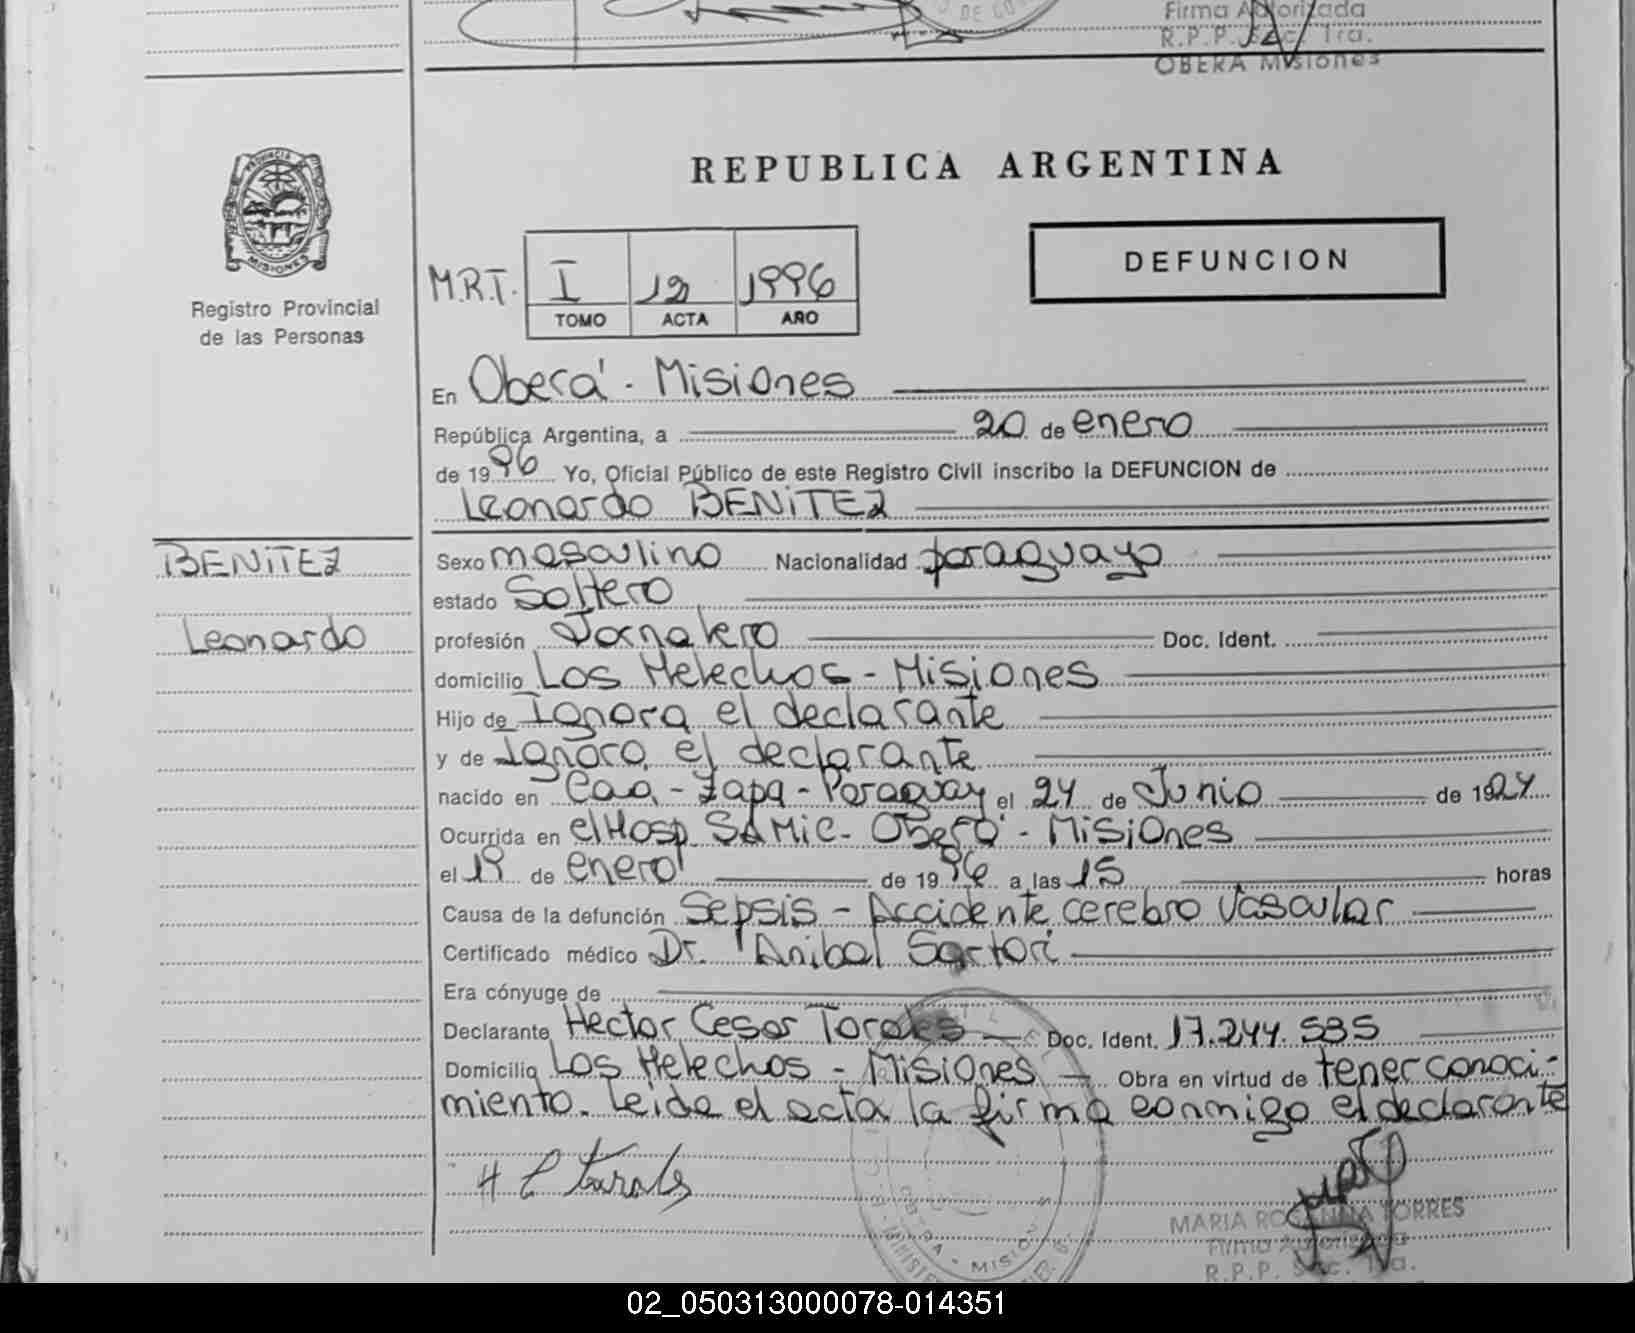 DE
Firma Autorizada
R.P.P. Sec. 1ra.
OBERA Misiones
PROVINCIA
MISIONES
Registro Provincial
de las Personas
REPUBLICA ARGENTINA
DEFUNCION
M.R.T. I 12 1996
TOMO ACTA AÑO
En Oberá - Misiones
República Argentina, a 20 de enero
de 1996 Yo, Oficial Público de este Registro Civil inscribo la DEFUNCION de
Leonardo BENITEZ
BENITEZ
Leonardo
Sexo masculino Nacionalidad paraguayo
estado Soltero
profesión Jornalero Doc. Ident.
domicilio Los Helechos - Misiones
Hijo de Ignora el declarante
y de Ignora el declarante
nacido en Caa - Zapa - Paraguay el 24 de Junio de 1924
Ocurrida en el Hosp. SAMIC - Oberá - Misiones
el 19 de enero de 1996 a las 15 horas
Causa de la defunción Sepsis - Accidente cerebro Vascular
Certificado médico Dr. Anibal Sartori
Era cónyuge de
Declarante Hector Cesar Torales Doc. Ident. 17.244.535
Domicilio Los Helechos - Misiones Obra en virtud de tener conoci-
miento. Leida el acta la firma conmigo el declarante
H C Torales
MARIA TORRES
Firma Autorizada
R.P.P. Sec. 1ra.
02_050313000078-014351